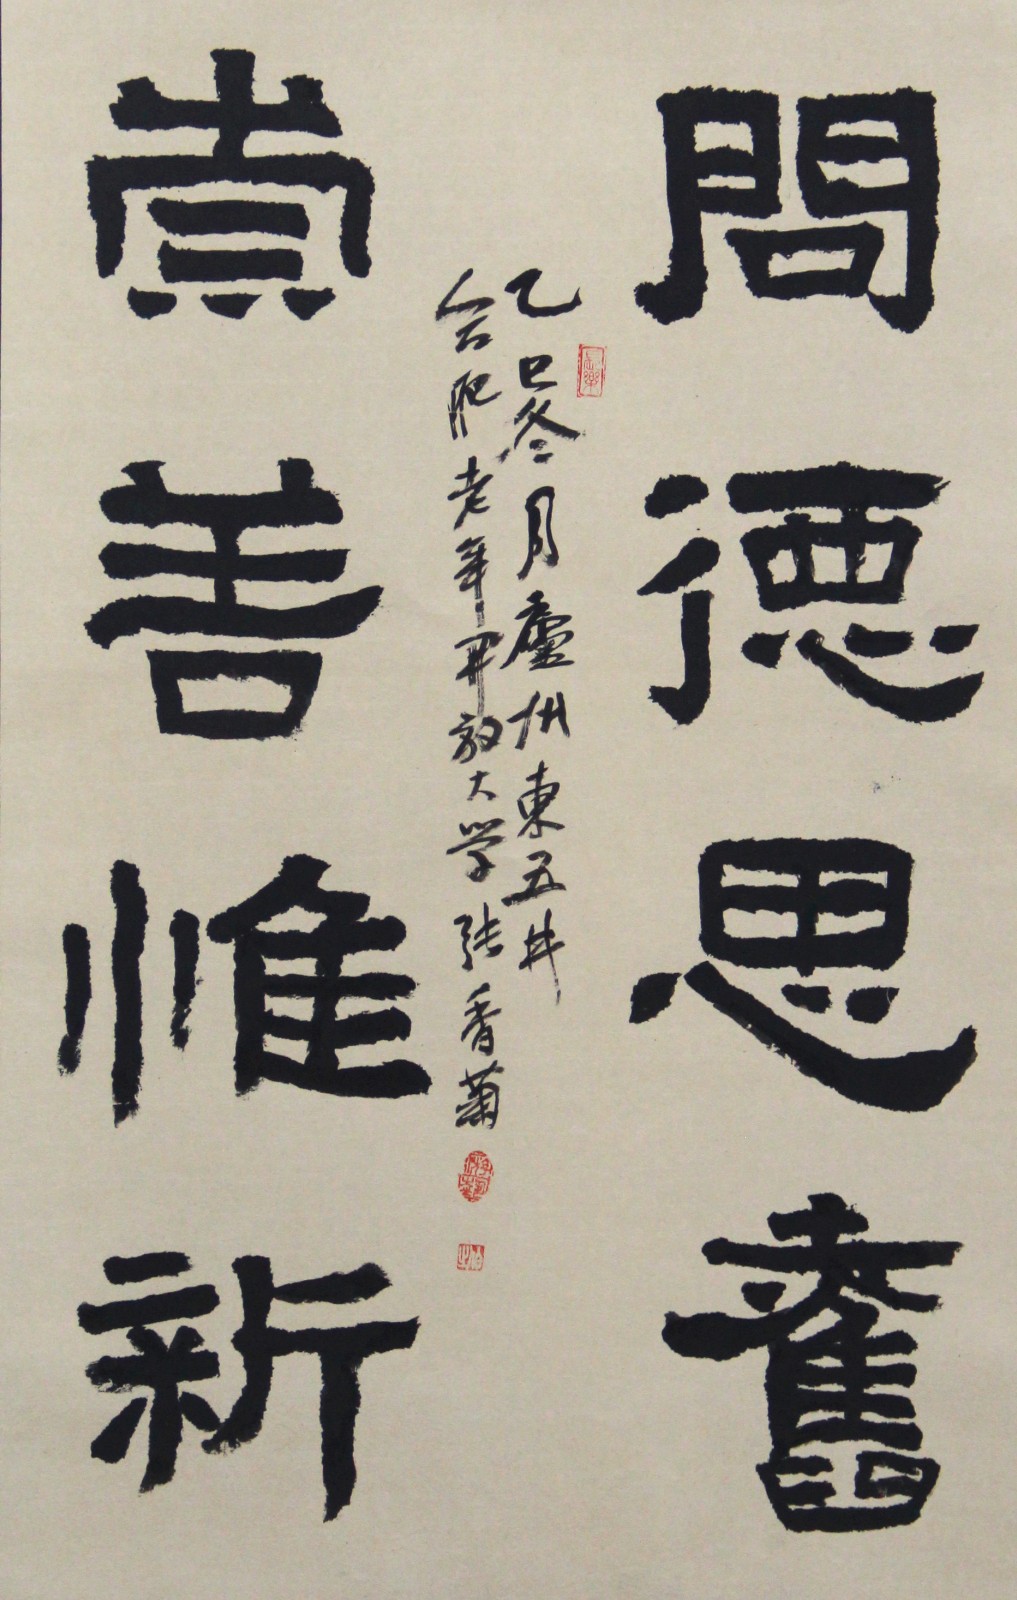 問德思奮
乙巳冬月廬州東五井
合肥老年開放大学张香
崇善惟新